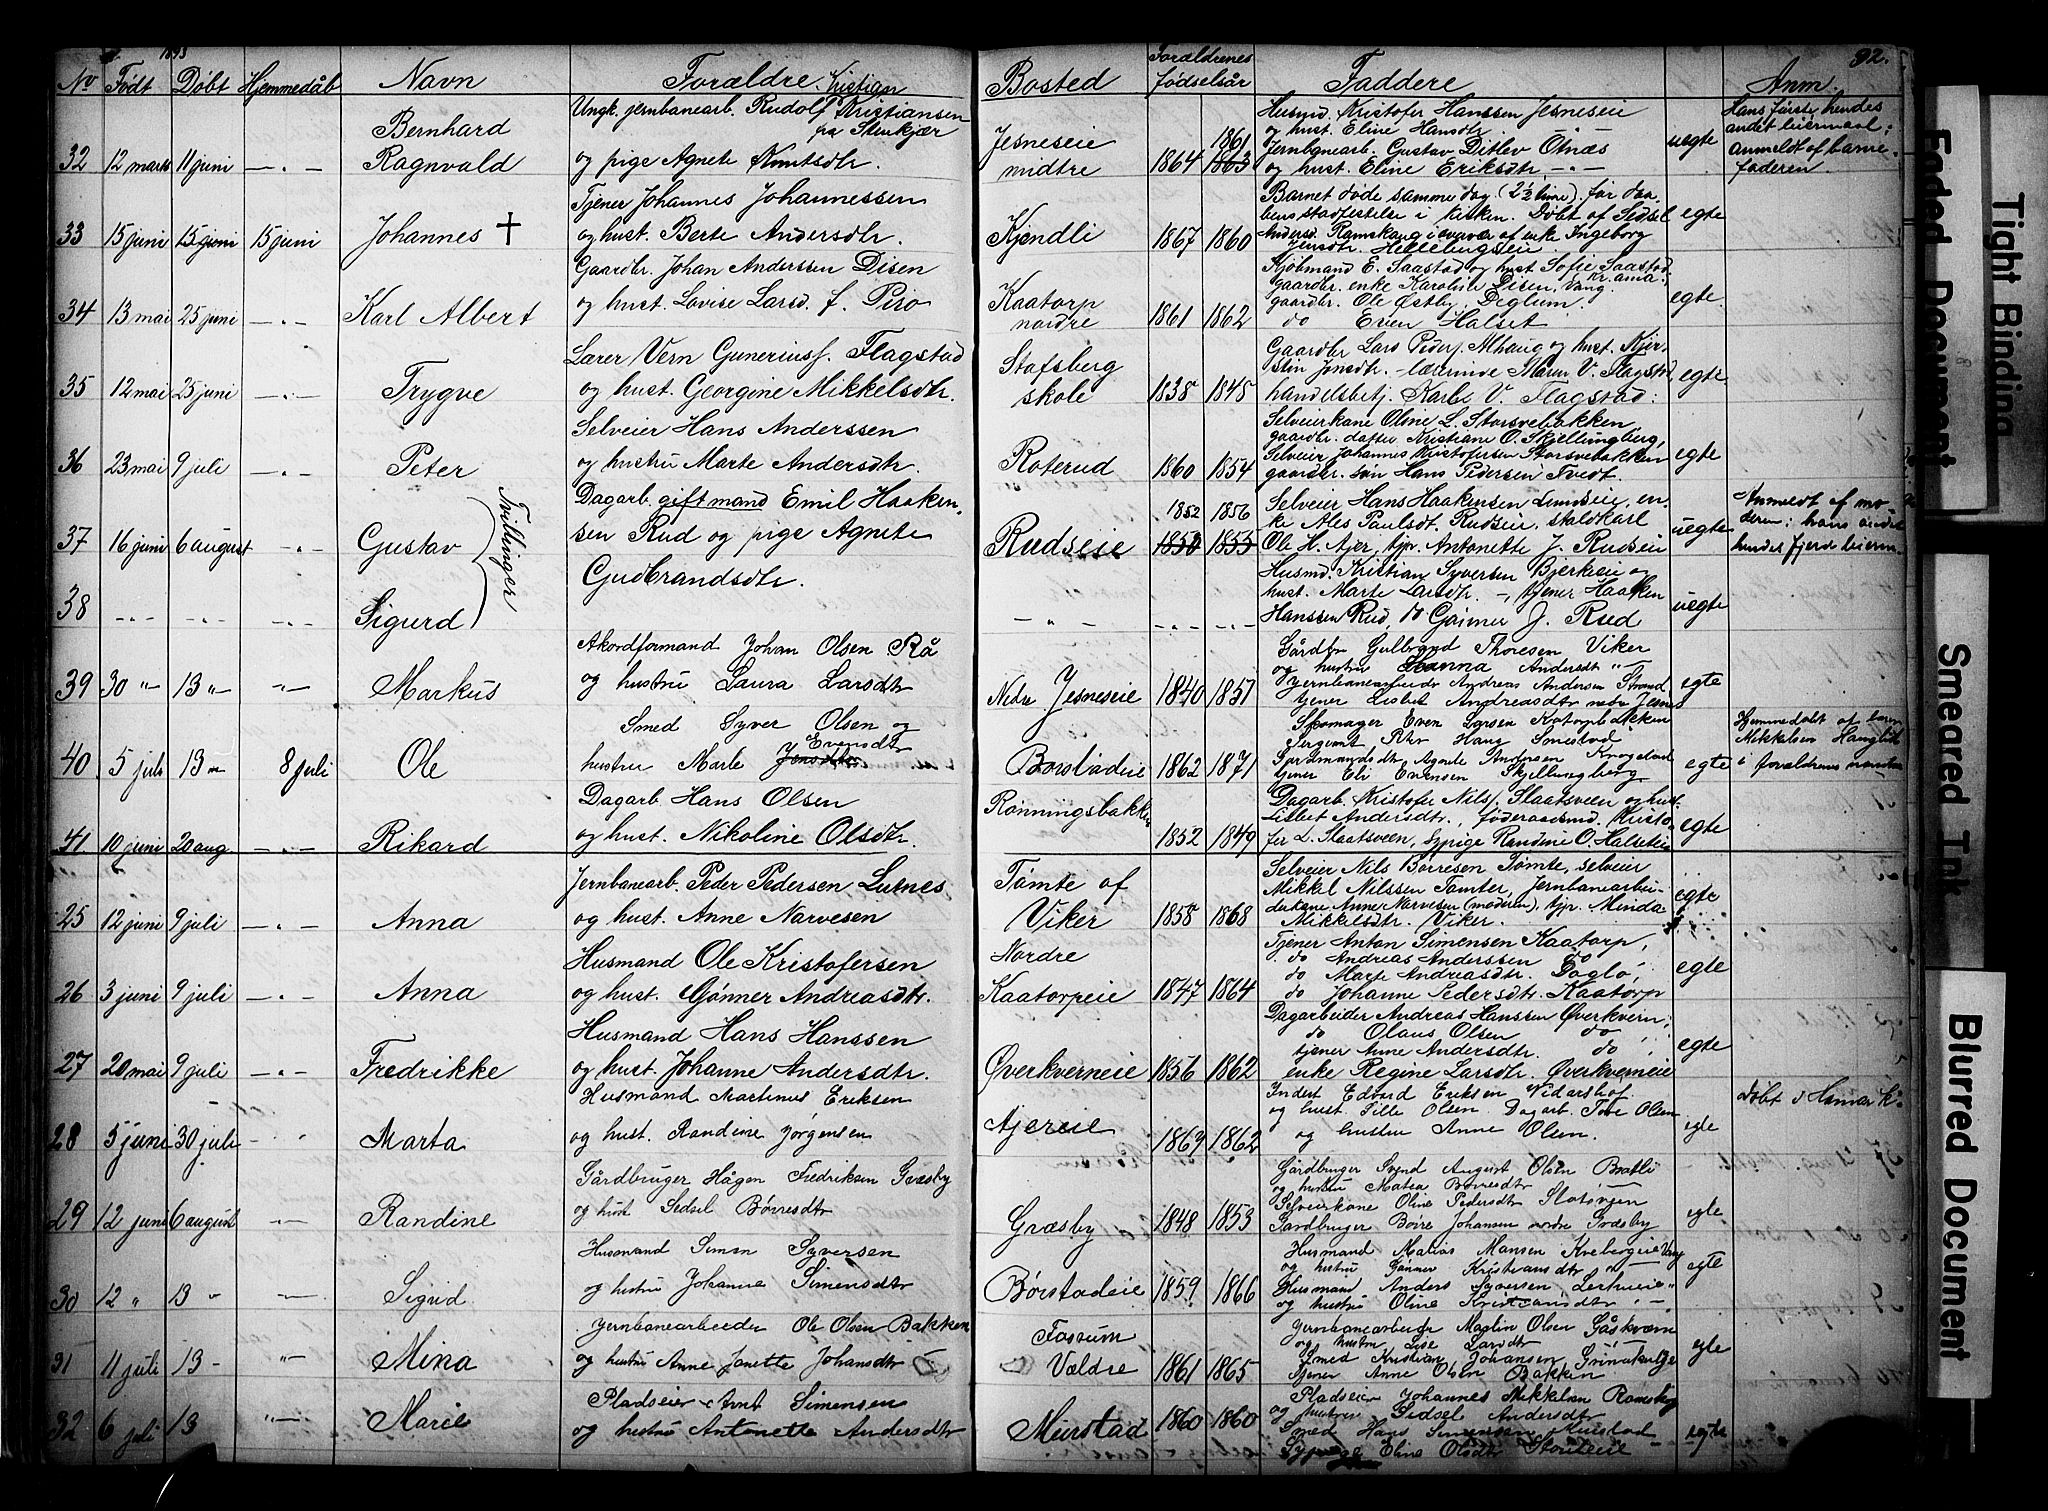 1893
92.
No Født Døbt Hjemmedåb Navn Forældre Bosted Forældrenes fødselsår Faddere Anm.
32 12 marts 11 juni —„— Bernhard Ragnvald
Ungk. jernbanearb. Rudolf Kristian Kristiansen
fra Stenkjær
og pige Agnete Knutsdtr.
Jesneseie midtre 1864 1861 1863
Husmd. Kristofer Hanssen Jesneseie
og hust. Eline Hansdtr.
Jernbanearb. Gustav Ditlev Otnæs
og hust. Eline Eriksdtr. —„—
uegte
Hans første, hendes
andet leiermaal;
anmeldt af barne-
faderen.
33 15 juni 15 juni 15 juni Johannes †
Tjener Johannes Johannessen
og hust. Berte Andersdtr.
Kjendli 1867 1860
Barnet døde samme dag (2½ time) før daa-
bens stadfestelse i kirken. Døbt af Sidsel
Andersd. Ramskaug i nærvær af enke Ingeborg
Jensdtr. Hellebergseie
egte
34 13 mai 25 juni —„— Karl Albert
Gaardbr. Johan Anderssen Disen
og hust. Lovise Larsd. f. Piro
Kaatorp nordre 1861 1862
Kjøbmand E. Saastad og hust. Sofie Saastad
gaardbr. enke Karoline Disen, Vang.
gaardbr. Ole Østby, Deglum.
do Even Halset
egte
35 12 mai 25 juni —„— Trygve
Lærer Vern Gunerius f. Flagstad
og hust. Georgine Mikkelsdtr.
Stafsberg skole 1838 1848
Gaardbr Lars Peders. Alhaug og hust. Kjer-
stin Jonsdtr. - lærerinde Maren V. Flagstad,
handelsbetj. Karle V. Flagstad:
egte
36 23 mai 9 juli —„— Peter
Selveier Hans Anderssen
og hustru Marte Andersdtr.
Roterud 1860 1854
Selveierkone Oline L. Storsvebakken,
gaardbr. datter Kristiane O. Skjellungberg,
Selveier Johannes Kristofersen Storsvebakken
gaardbr. søn Hans Pedersen Tvedt.
egte
37 16 juni 6 august —„— Gustav
Tvillinger
Dagarb. gift mand Emil Haaken-
sen Rud og pige Agnete
Gudbrandsdtr.
Rudseie 1852 1856 1850 1855
Selveier Hans Haakensen Lundseie, en-
ke Ales Paulsdt. Rudseie, staldkarl
Ole H. Ajer, tjp. Antonette J. Rudseie
uegte
Anmeldt af mo-
deren; hans andet
hendes fjerde leierm.
38 —„— —„— —„— Sigurd
—„— —„— —„—
Husmd. Kristian Syversen Bjerkeie og
hust. Marte Larsdtr. —, tjener Haaken
Hanssen Rud, do Gaimer J. Rud
uegte
39 30 „ 13 „ —„— Markus
Akordformand Johan Olsen Rå
og hustru Laura Larsdtr
Nedre Jesneseie 1840 1857
Gårdbr Gulbrand Thoresen Viker
og hustru Hanna Andersdt „
Jernbanearbeider Andreas Andersen Strand
tjener Lisbet Andreasdtr nedre Jesnes
egte
40 5 juli 13 „ 8 juli Ole
Smed Syver Olsen og
hustru Marte Evensdtr Jensdtr
Børstadeie 1862 1871
Skomager Even Larsen Kaatorpbakken
Sergeant Peter Hans Smestad
Agarte Andersen Knogstad
tjener Eli Evensen Skjellungberg
egte
Hjemmedøbt af
Mikkelsen
i forældrenes
41 10 juni 20 aug. —„— Rikard
Dagarb. Hans Olsen
og hust. Nikoline Olsdtr.
Rønningsbakken 1852 1849
Dagarb. Kristofer Nils. Slaatsveen og hust.
Lilbet Andersdtr., føderaadsmd. Kristo-
fer L. Slaatsveen, sypige Randine O. Halseteie
egte
25 12 juni 9 juli —„— Anna
Jernbanearb. Peder Pedersen Lutnes
og hust. Anne Narvesen
Tømte af Viker 1858 1868
Selveier Nils Børresen Tømte, selveier
Mikkel Nilssen Tømter, Jernbanearbei-
derkone Anne Narvesen (moderen), tjp. Minda
Mikkelsdtr. Viker.
egte
26 3 juni 9 juli —„— Anna
Husmand Ole Kristofersen
og hust. Gønner Andreasdtr.
Nordre Kaatorpeie 1847 1864
Tjener Anton Simensen Kaatorp,
do Andreas Anderssen do
do Marte Andreasdtr. Daglø,
do Johanne Pedersdtr. Kaatorp
egte
27 20 mai 9 juli —„— Fredrikke
Husmand Hans Hanssen
og hust. Johanne Andersdtr.
Øverkverneie 1856 1862
Dagarbeider Andreas Hanssen Øverkvern,
do Olaus Olsen do
tjener Anne Andersdtr. do
enke Regine Larsdtr. Øverkverneie
egte
28 5 juni 30 juli —„— Marta
Husmand Martinus Eriksen
og hust. Randine Jørgensen
Ajereie 1869 1862
Inderst Edvard Eriksen Vidarshof
og hust. Pille Olsen. Dagarb. Tove Olsen
og hustru Anne Olsen.
egte
Døbt i Hamar k.
29 12 juni 6 august —„— Randine
Gårdbruger Hågen Fredriksen Græsby
og hust Sidsel Børresdtr
Græsby 1848 1853
Gårdbruger Svend August Olsen Bratli
og hustru Matea Børresdtr
Selveierkone Oline Pedersdtr Slatsvjen
Gardbruger Børre Johansen nordre Græsby
egte
30 12 „ 13 „ —„— Sigrid
Husmand Simen Syversen
og hustru Johanne Simensdtr
Børstadeie 1859 1866
Husmand Matias Hansen Krebergeie Vang
og hustru Gønner Kristiansdtr —„—
Husmand Anders Syversen Lerhueie „
og hustru Oline Kristiansdtr —„—
egte
31 4 juli 13 - —„— Mina
Jernbanearbeider Ole Olsen Bakken
og hustru Anne Janette Johansdtr
Fossum Vældre 1861 1865
Jernbanearbeider Maglin Olsen Gåskværn
og hustru Lise Larsdtr
Smed Kristian Johansen Grinakulje
tjener Anne Olsen Bakken
egte
32 6 juli 13 —„— Marie
Pladseier Arnt Simensen
og hustru Antonette Andersdtr
Murstad 1860 1860
Pladseier Johannes Mikkelsen Ramsby
og hustru Sidsel Andersdtr
Smed Hans Simensen Murstad
Sypige Eline Olsdtr Storiteie
egte
Faded Document
Tight Binding
Smeared Ink
Blurred Document